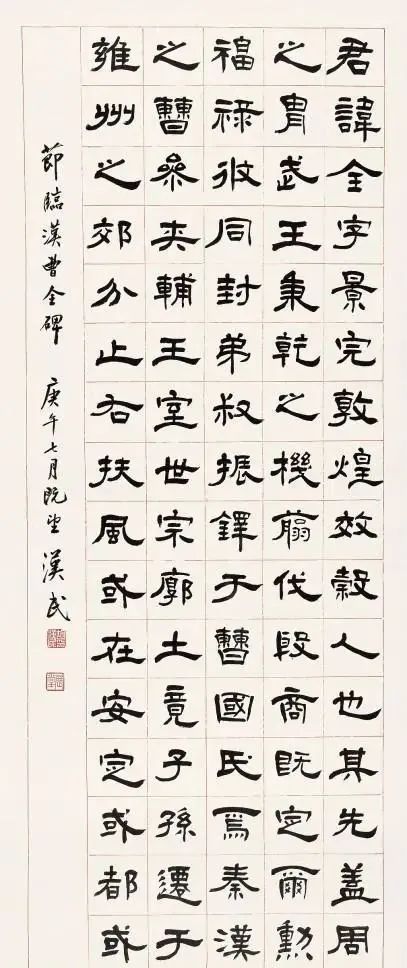 君諱全字景完敦煌效穀人也其先蓋周
之胄武王秉乾之機翦伐殷商既定爾勳
福祿攸同封弟叔振鐸于曹國氏焉秦漢
之曹參夾輔王室世宗廓土竟子孫遷于
雍州之郊分止右扶風或在安定或都或
節臨漢曹全碑 庚午七月既望 漢